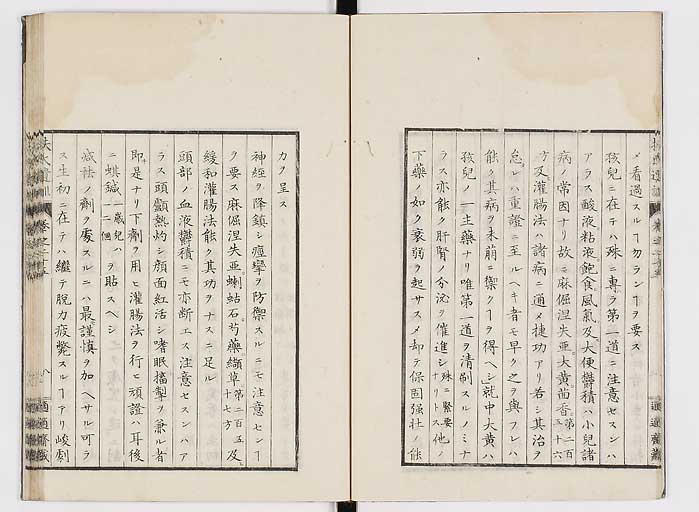 メ看過スルヿ勿ランヿヲ要ス
孩兒ニ在テハ殊ニ専ラ第一道ニ注意セスンハ
アラス酸液粘液飽食風氣及大便欝積ハ小兒諸
病ノ常因ナリ故ニ麻倔涅失亜大黄茴香第二百五十六
方及灌腸法ハ諸病ニ通メ捷功アリ若シ其治ヲ
怠レハ重證ニ至ルヘキ者モ早ク之ヲ與フレハ
能ク其病ヲ未萠ニ禦クヿヲ得ヘシ就中大黄ハ
孩兒ノ一主藥ナリ唯第一道ヲ清刷スルノミナ
ラス亦能ク肝腎ノ分泌ヲ催進シ殊ニ緊要ナリトス他ノ
下藥ノ如ク衰弱ヲ起サスメ却テ保固强壮ノ能
カヲ呈ス
神經ヲ降鎮シ痙攣ヲ防禦スルニモ注意センヿ
ヲ要ス麻倔涅失亜蝲蛄石芍藥纈草第二百五十七方及
緩和灌腸法能ク其功ヲナスニ足ル
頭部ノ血液欝積ニモ亦断エス注意セスンハア
ラス頭顱熱灼シ顔面紅活シ嗜眠搐掣ヲ兼ル者
即是ナリ下劑ヲ用ヒ灌腸法ヲ行ヒ頑證ハ耳後
ニ蜞鍼一歳兒ハ一二個ヲ貼スヘシ
減祛ノ劑ヲ處スルニハ最謹慎ヲ加ヘサル可ラ
ス生初ニ在テハ繼テ脱力疲斃スルヿアリ峻劇
扶氏遺訓
八
適適齋藏